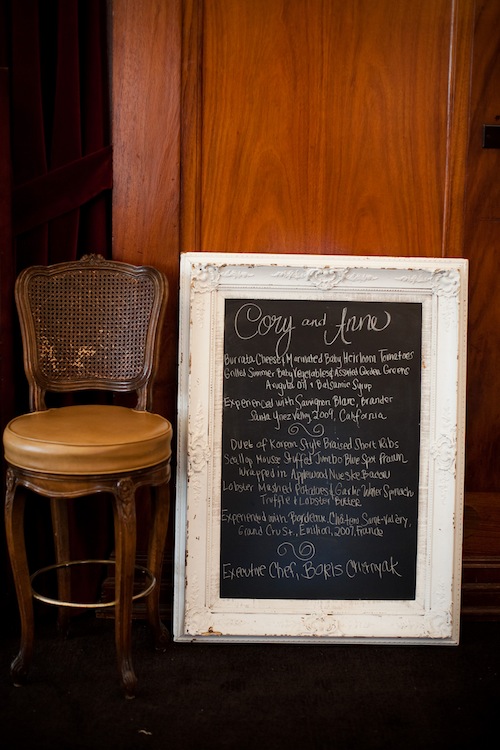 Cory and Anne
Burrata Cheese, Marinated Baby Heirloom Tomatoes
Grilled Summer Baby Vegetables & Assorted Garden Greens
Arugula oil & Balsamic Syrup
Experienced with Sauvignon Blanc, Brander
Santa Ynez Valley 2009, California
Duet of Korean Style Braised Short Ribs
Scallop Mouse Stuffed Jumbo Blue Spot Prawn
Wrapped in Applewood Nueske Bacon
Lobster Mashed Potatoes & Garlic Water Spinach
Truffle & Lobster Butter
Experienced with Bordeaux, Château Saint-Valéry,
Grand Cru St., Emilion, 2007, France
Executive Chef, Boris